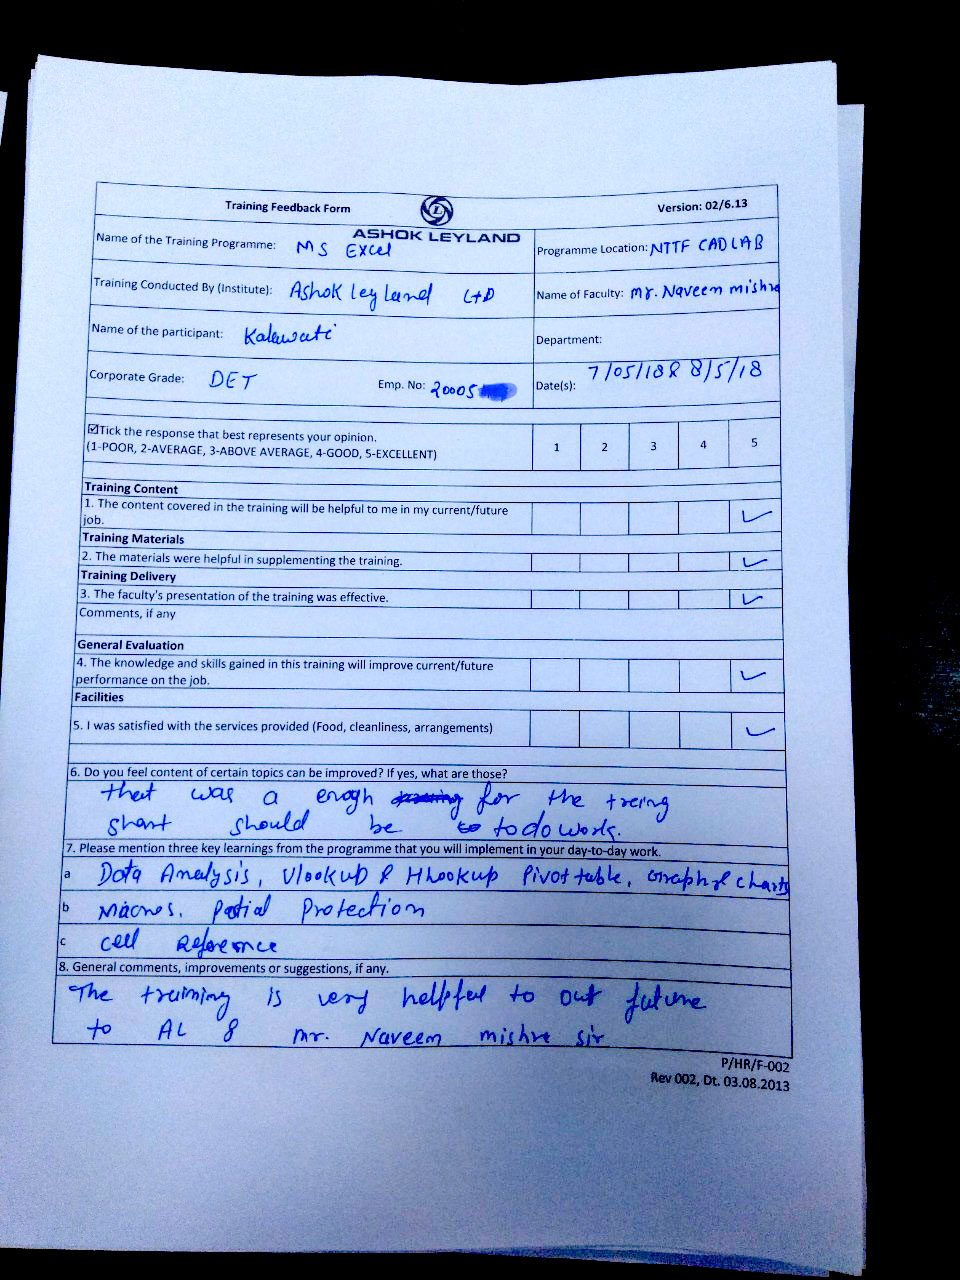 Training Feedback Form
Version: 02/6.13
ASHOK LEYLAND
Name of the Training Programme: MS Excel
Programme Location: NTTF CAD LAB
Training Conducted By (Institute): Ashok leyland LtD
Name of Faculty: Mr. Naveen mishra
Name of the participant: Kalawati
Department:
Corporate Grade: DET
Emp. No: 20005
Date(s): 7/05/18 & 8/5/18
☑Tick the response that best represents your opinion.
(1-POOR, 2-AVERAGE, 3-ABOVE AVERAGE, 4-GOOD, 5-EXCELLENT)
1 2 3 4 5
Training Content
1. The content covered in the training will be helpful to me in my current/future
job.
Training Materials
2. The materials were helpful in supplementing the training.
Training Delivery
3. The faculty's presentation of the training was effective.
Comments, if any
General Evaluation
4. The knowledge and skills gained in this training will improve current/future
performance on the job.
Facilities
5. I was satisfied with the services provided (Food, cleanliness, arrangements)
6. Do you feel content of certain topics can be improved? If yes, what are those?
that was a enogh for the treing
should be to do work.
7. Please mention three key learnings from the programme that you will implement in your day-to-day work.
a Data Analysis, Vlookup & Hlookup Pivot table, Graph & charts
b Macros, Protection
c cell Reference
8. General comments, improvements or suggestions, if any.
The training is very helpful to out future
to AL & mr. Naveen mishra sir
P/HR/F-002
Rev 002, Dt. 03.08.2013